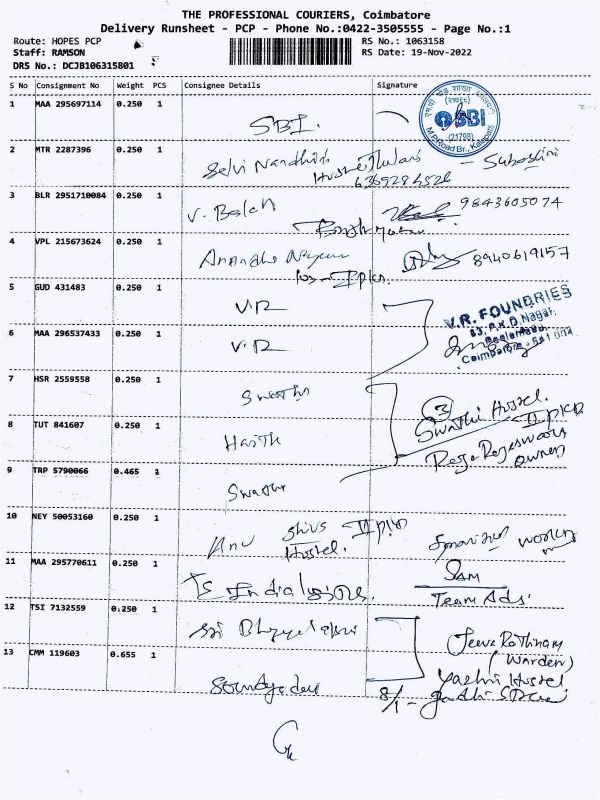 THE PROFESSIONAL COURIERS, Coimbatore
Delivery Runsheet - PCP - Phone No.:0422-3505555 - Page No.:1
Route: HOPES PCP
RS No.: 1063158
Staff: RAMSON
RS Date: 19-Nov-2022
DRS No.: DCJB106315801
S No Consignment No Weight PCS Consignee Details Signature
1 MAA 295697114 0.250 1
SBI.
SBI
(21798)
M.P.Road Br., Kalapatti
2 MTR 2287396 0.250 1
Selvi Nandhini
6369284526
Suboshini
3 BLR 2951710084 0.250 1
V. Balaji
9843605074
4 VPL 215673624 0.250 1
8940619157
5 GUD 431483 0.250 1
V.R
V.R. FOUNDRIES
83, P.K.D. Nagar,
Peelamedu
Coimbatore - 641 004
6 MAA 296537433 0.250 1
V.R
7 HSR 2559558 0.250 1
Swathi
3
Swathi Hostel.
Raja Rajeswari
owner
8 TUT 841607 0.250 1
Harith
9 TRP 5790066 0.465 1
Swathi
10 NEY 50053160 0.250 1
Anu
Hostel.
11 MAA 295770611 0.250 1
Sam
Team Ads
12 TSI 7132559 0.250 1
Sri
Jeeva Rathinam
(Warden)
13 CMM 119603 0.655 1
Hostel